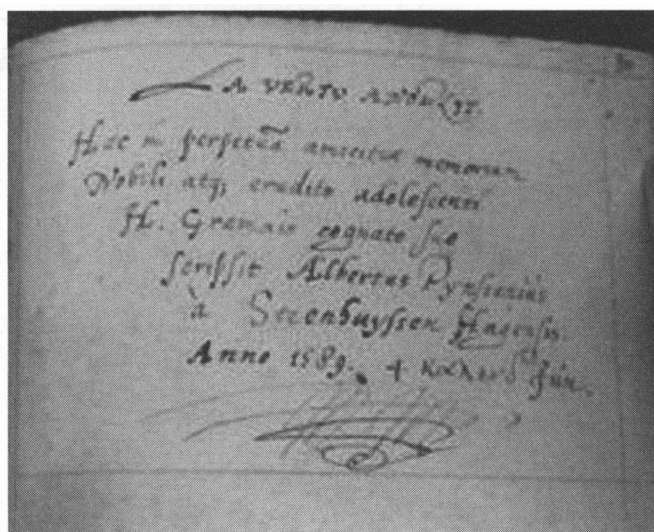 LA VERTU ANOBLIT.
Hæc in perpetuā amicitiæ memoriam
Nobili atq; erudito adolescenti
H. Gramaio cognato suo
scripsit Albertus Pynssenius
à Steenhuyssen Hagensis.
Anno 1589. 4 Jun.